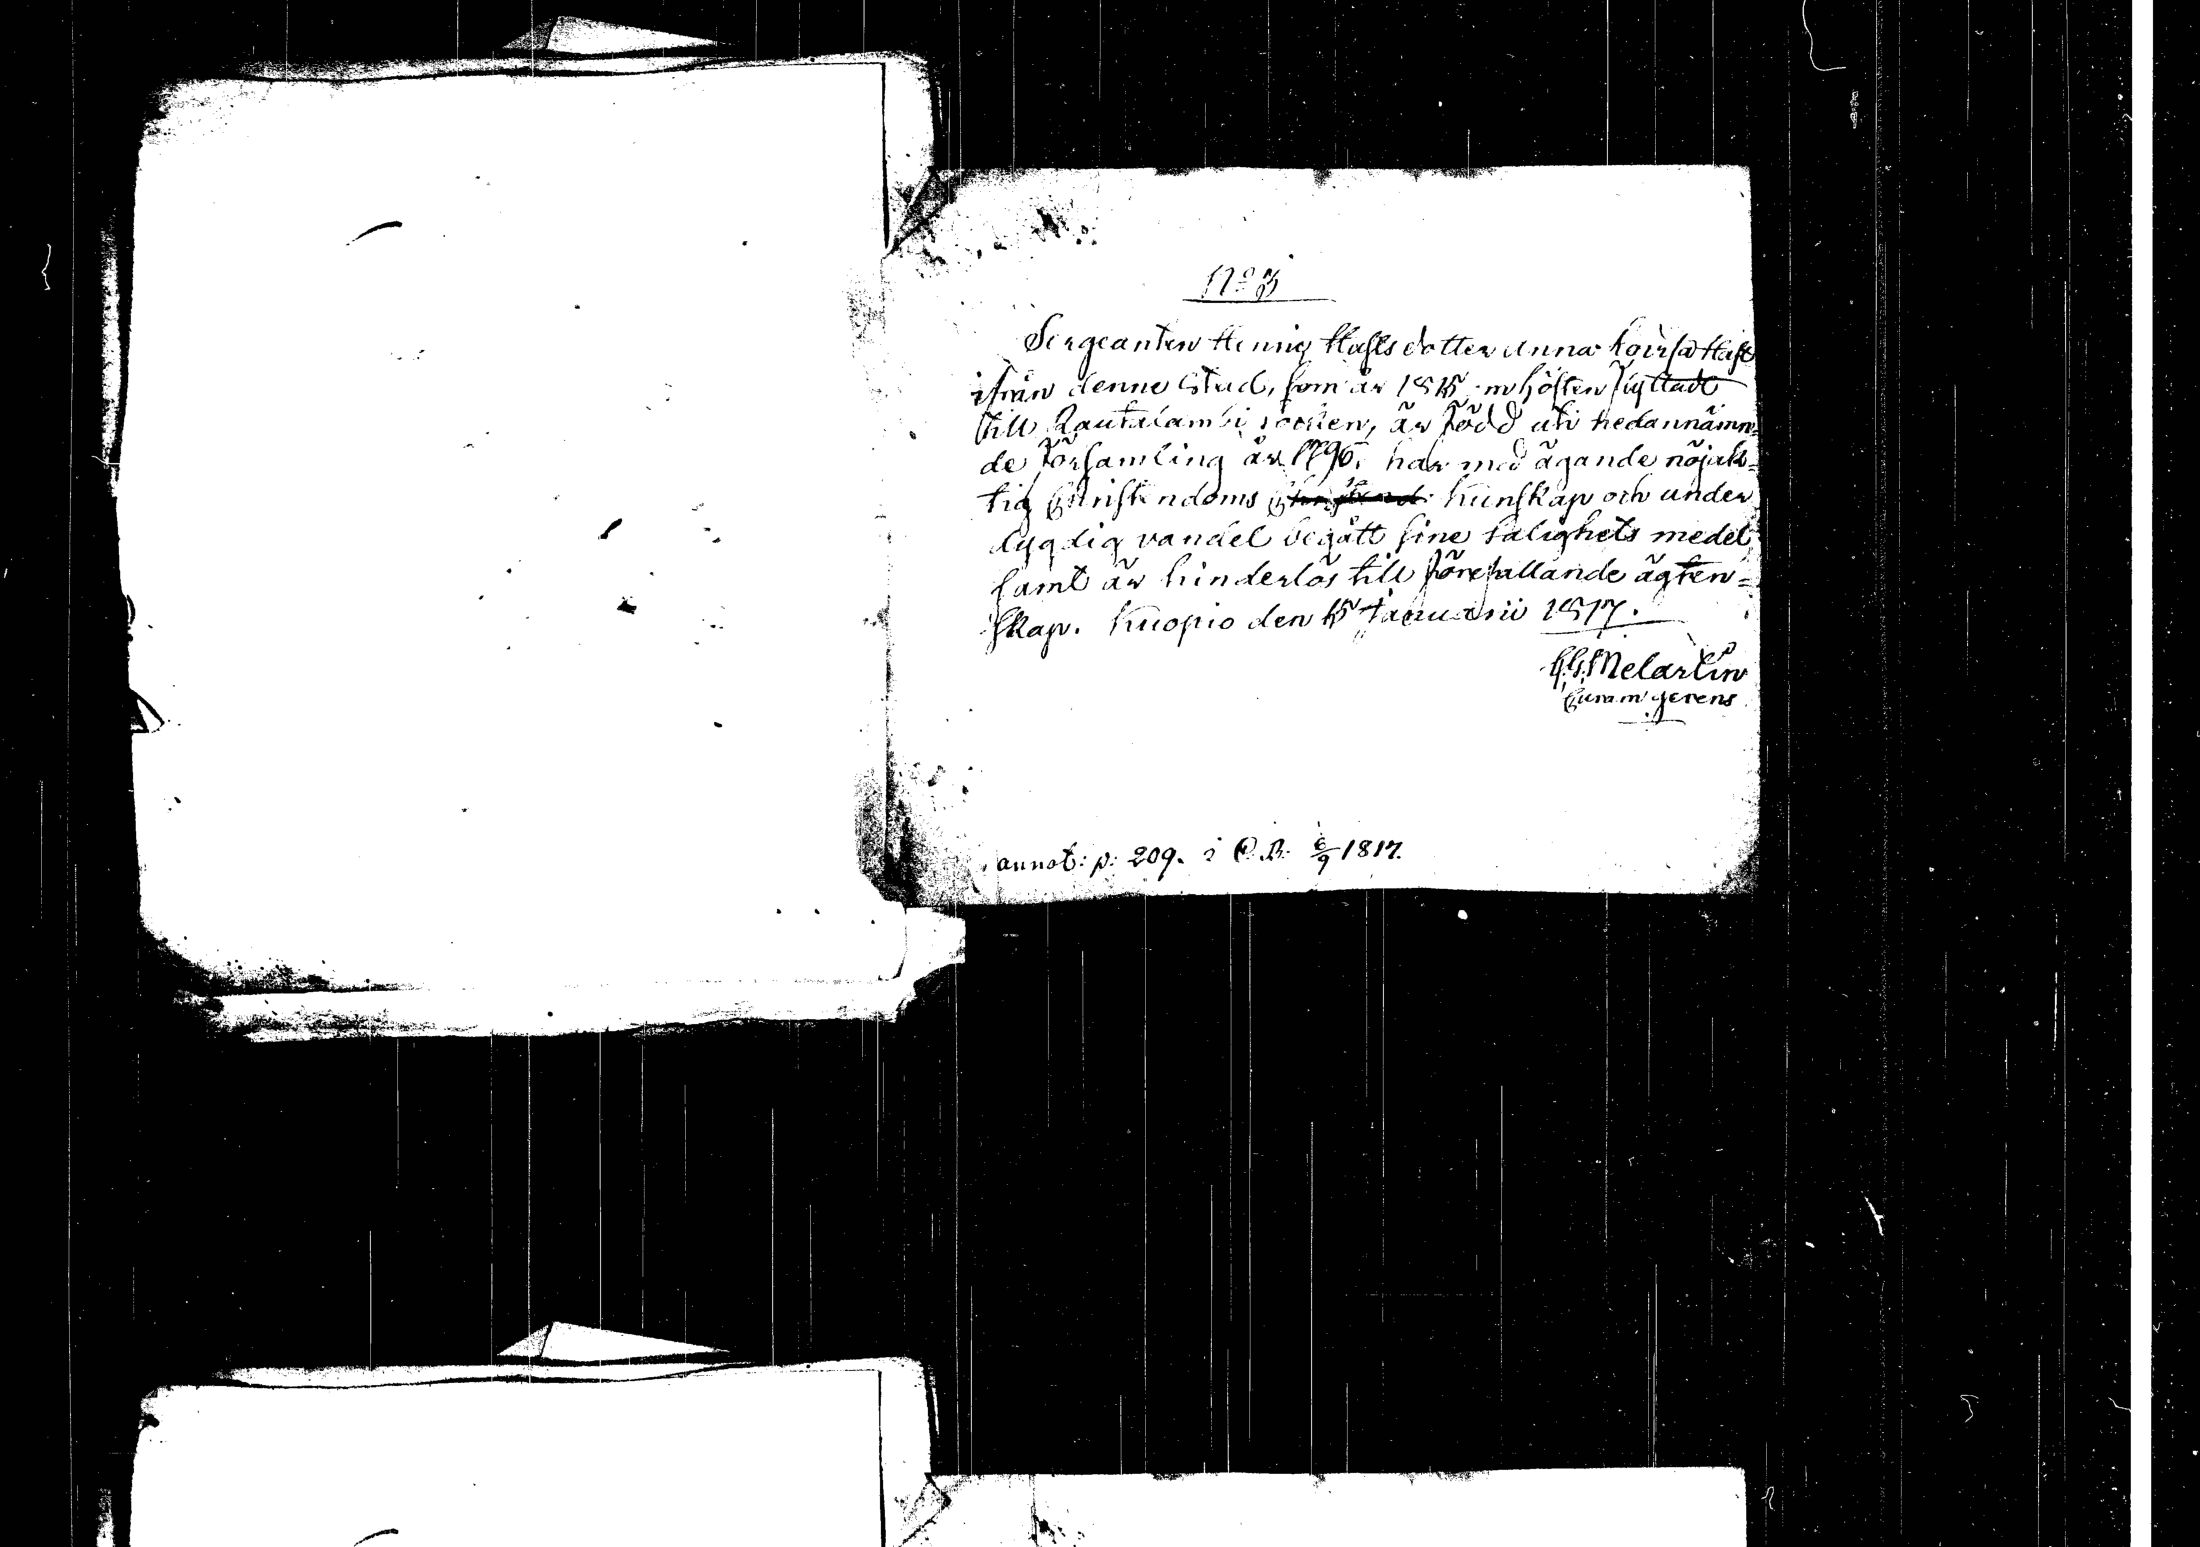 N:o 3
Sergeanten Hennig Hafts dotter Anna Lovisa Haft
ifrån denne Stad, som år 1815 om hösten flyttadt
till Rautalambi socken, är född uti nedannämn=
de församling år 1796. har med ägande nöjak=
tig Christendoms kunskap och under
dygdig vandel begått sine salighets medel,
samt är hinderlös till förefallande ägten=
skap. Kuopio den 15 Januarii 1817.
Melartin
Curam gerens
annot: p: 209. i C.B. 6/9 1817.